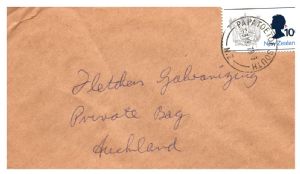 PAPATOETOE SOUTH
N.Z
10c
New Zealand
Fletchers Galvanizing
Private Bag
Auckland